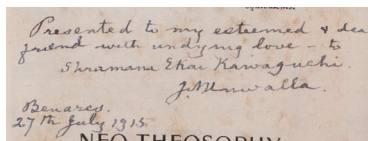 Presented to my esteemed & dea
friend with undying love – to
Shramana Ekai Kawaguchi.
J. N. Unwalla.
Benares.
27th July 1915
NEO THEOSOPHY